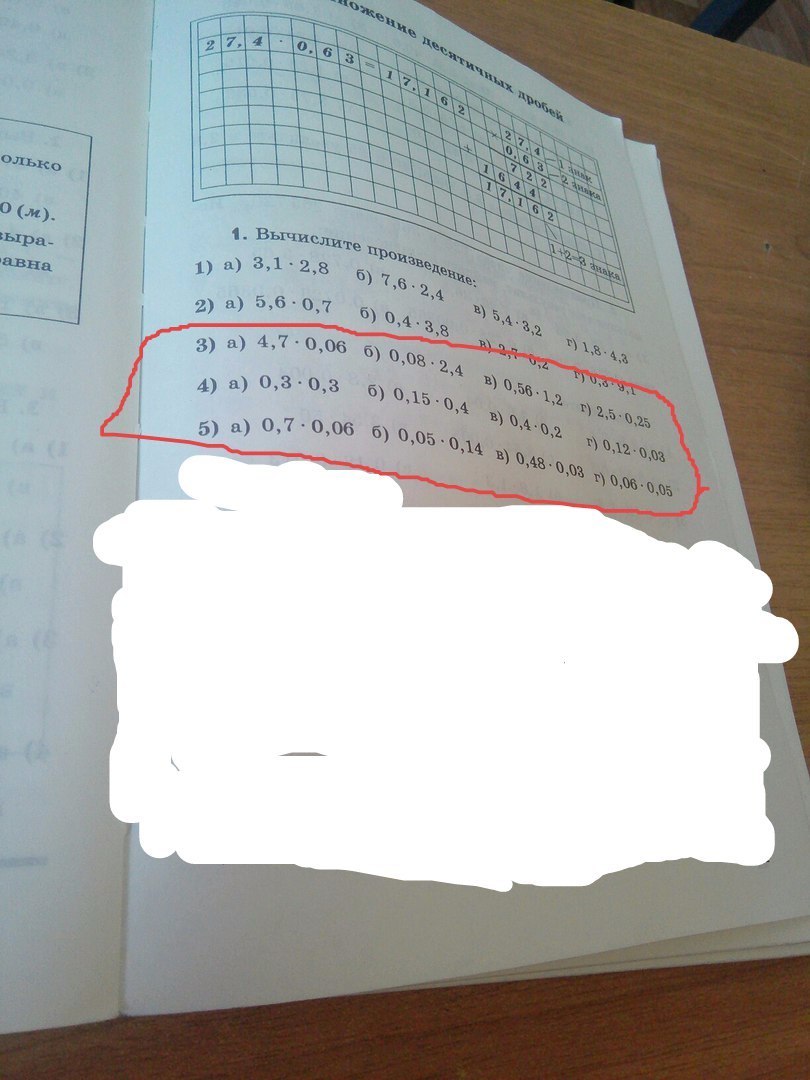 ножение десятичных дробей
27,4 · 0,63 = 17,162
× 27,4 — 1 знак
0,63 — 2 знака
+ 722
1644
17,162
1+2=3 знака
олько
0 (м).
выра-
авна
1. Вычислите произведение:
1) а) 3,1 · 2,8 б) 7,6 · 2,4 в) 5,4 · 3,2 г) 1,8 · 4,3
2) а) 5,6 · 0,7 б) 0,4 · 3,8 в) 2,7 · 0,2 г) 0,3 · 9,1
3) а) 4,7 · 0,06 б) 0,08 · 2,4 в) 0,56 · 1,2 г) 2,5 · 0,25
4) а) 0,3 · 0,3 б) 0,15 · 0,4 в) 0,4 · 0,2 г) 0,12 · 0,03
5) а) 0,7 · 0,06 б) 0,05 · 0,14 в) 0,48 · 0,03 г) 0,06 · 0,05